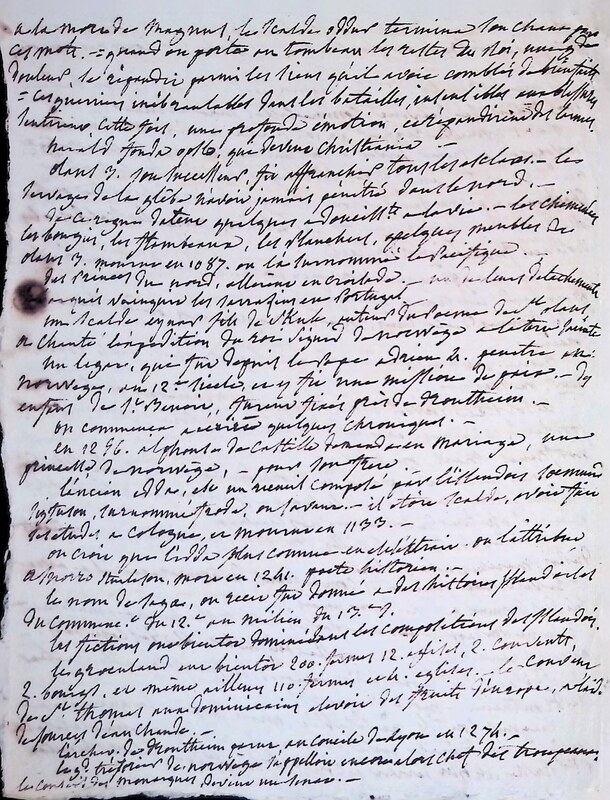 a la mort de Magnus, le scalde oddur termina son chant par
ces mots. = quand on porta au tombeau les restes du Roi, une gde
douleur, se répandit parmi les siens qu'il avoit comblés de bienfaits
= ces guerriers inébranlables dans les batailles, insensibles aux blessures
sentirent cette fois, une profonde émotion, et répandirent des larmes.
harald fonda opslo, qui devint Christiania —
olaus 3. son successeur, fit affranchir tous les esclaves. — les
servages de la glèbe n'avoit jamais pénétré dans le nord. —
de ce règne datent quelques adoucissts a la vie. — les cheminées
les bougies, les flambeaux, les planchers, quelques meubles &c
olaus 3. mourut en 1087. on l'a surnommé le Pacifique.
des Princes du nord, allèrent en croisade. — un de leurs détachements
vainquit les sarrasins en Portugal
un scalde eynar fils de Skul, auteur du Poème de st olaus
a chanté l'expédition du roi Sigurd de norwège a la terre sainte
un légat, que fut depuis le Pape adrien 4. pénétra en
norwège, au 12e siècle, et y fit une mission de paix. — des
enfans de st Benoit, furent fixés près de Drontheim. —
on commença a écrire quelques chroniques. —
en 1256. alphonse de Castille demanda en mariage, une
princesse de norwège, — pour son frère.
l'ancien edda, est un recueil composé par l'islandois soemund
sigfuson, surnommé frode, ou savant. — il étoit scalde, avoit fait
ses études a Cologne, et mourut en 1133. —
on croit que l'edda plus connue en est l'extrait. on l'attribue
a snorro sturleson, mort en 1241. poete historien. —
le nom de sagas, ou récit fut donné a des histoires islandoises
du commenct du 12e au milieu du 13e s.
les fictions ont bientôt dominé dans les compositions des islandois.
le groenland eut bientôt 200 fermes 12. églises, 2. couvents,
2. bourgs, et même ailleurs 110 fermes et 4. églises. — le couvent
de st thomas aux dominicains avoit des fruits d'europe, a l'aide
de sources d'eau chaude. —
l'archev. de Drontheim parut, au concile de Lyon en 1274. —
le gd trésorier de norwège s'appelloit encore alors chef des troupeaux.
le conseil des monarques devint un sénat. —